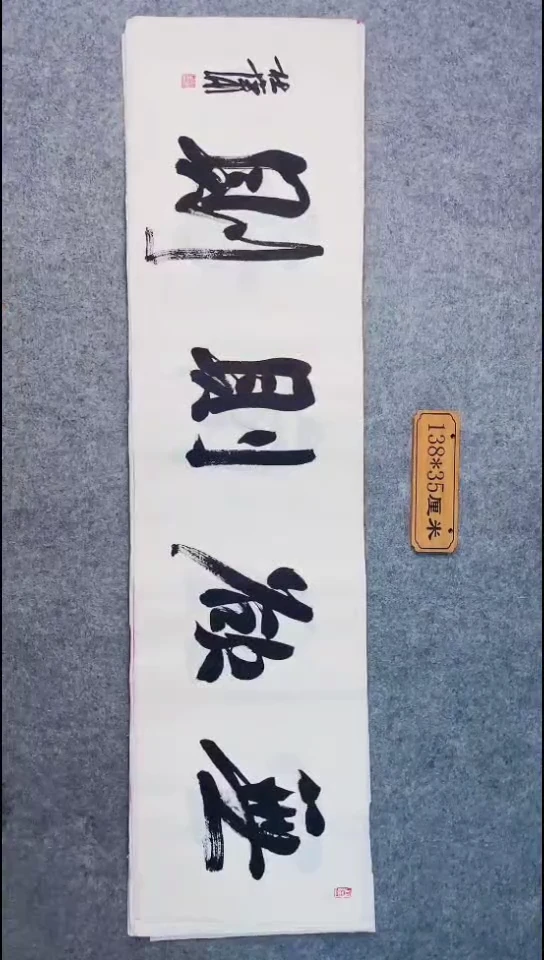 無欲則剛
138*35厘米